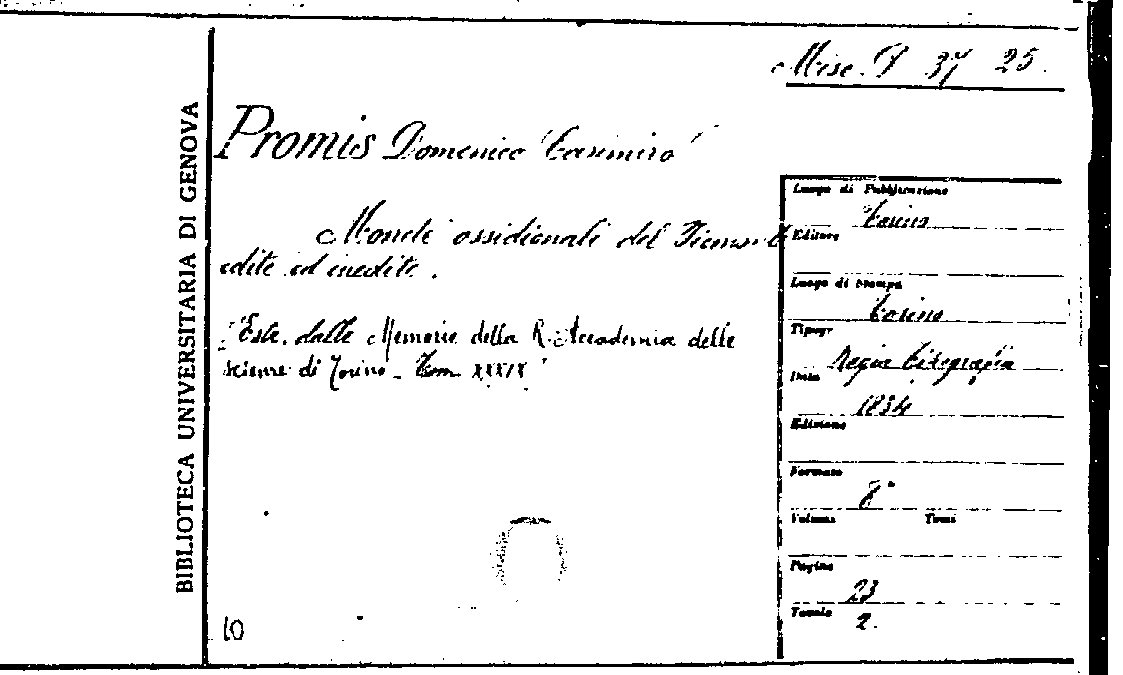 BIBLIOTECA UNIVERSITARIA DI GENOVA
Misc. P 37 25.
Promis Domenico Casimiro
Monete ossidionali del Piemonte
edite ed inedite.
Estr. dalle Memorie della R. Accademia delle
scienze di Torino - Tom. XXXIX
10
Luogo di Pubblicazione
Torino
Editore
Luogo di stampa
Torino
Tipogr
Regia Tipografia
Data
1834
Edizione
Formato
8°
Volume Tomi
Pagine
23
Tavole
2.